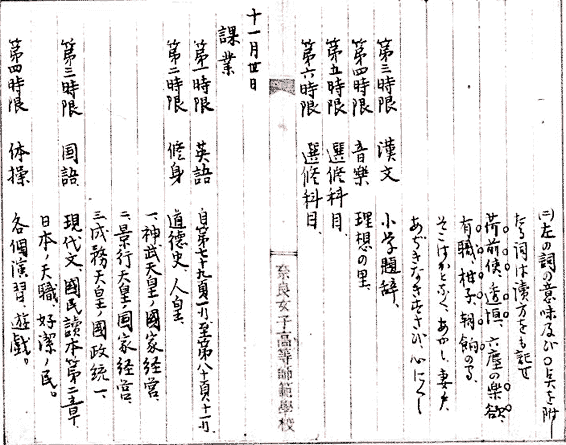 (二)左の詞の意味及び○点を附し
たる詞は讀方をも記せ
荷前使、透垣、六塵の樂欲、
有職、柑子、朝餉のま、
そこはかとなく、あやし、妻夫、
あぢきなきすさび、心にくし
第三時限 漢文 小学題辞、
第四時限 音樂 理想の里、
第五時限 選修科目、
第六時限 選修科目、
奈良女子高等師範學校
十一月廿日
課業
第一時限 英語 自第七十九頁一行至第八十頁十一行
第二時限 修身 道德史、人皇、
一、神武天皇ノ國家経営、
二、景行天皇ノ国家経営、
三、成務天皇ノ國政統一、
第三時限 国語 現代文、國民讀本第二章、
日本ノ天職、好潔ノ民。
第四時限 体操 各個演習、遊戯。